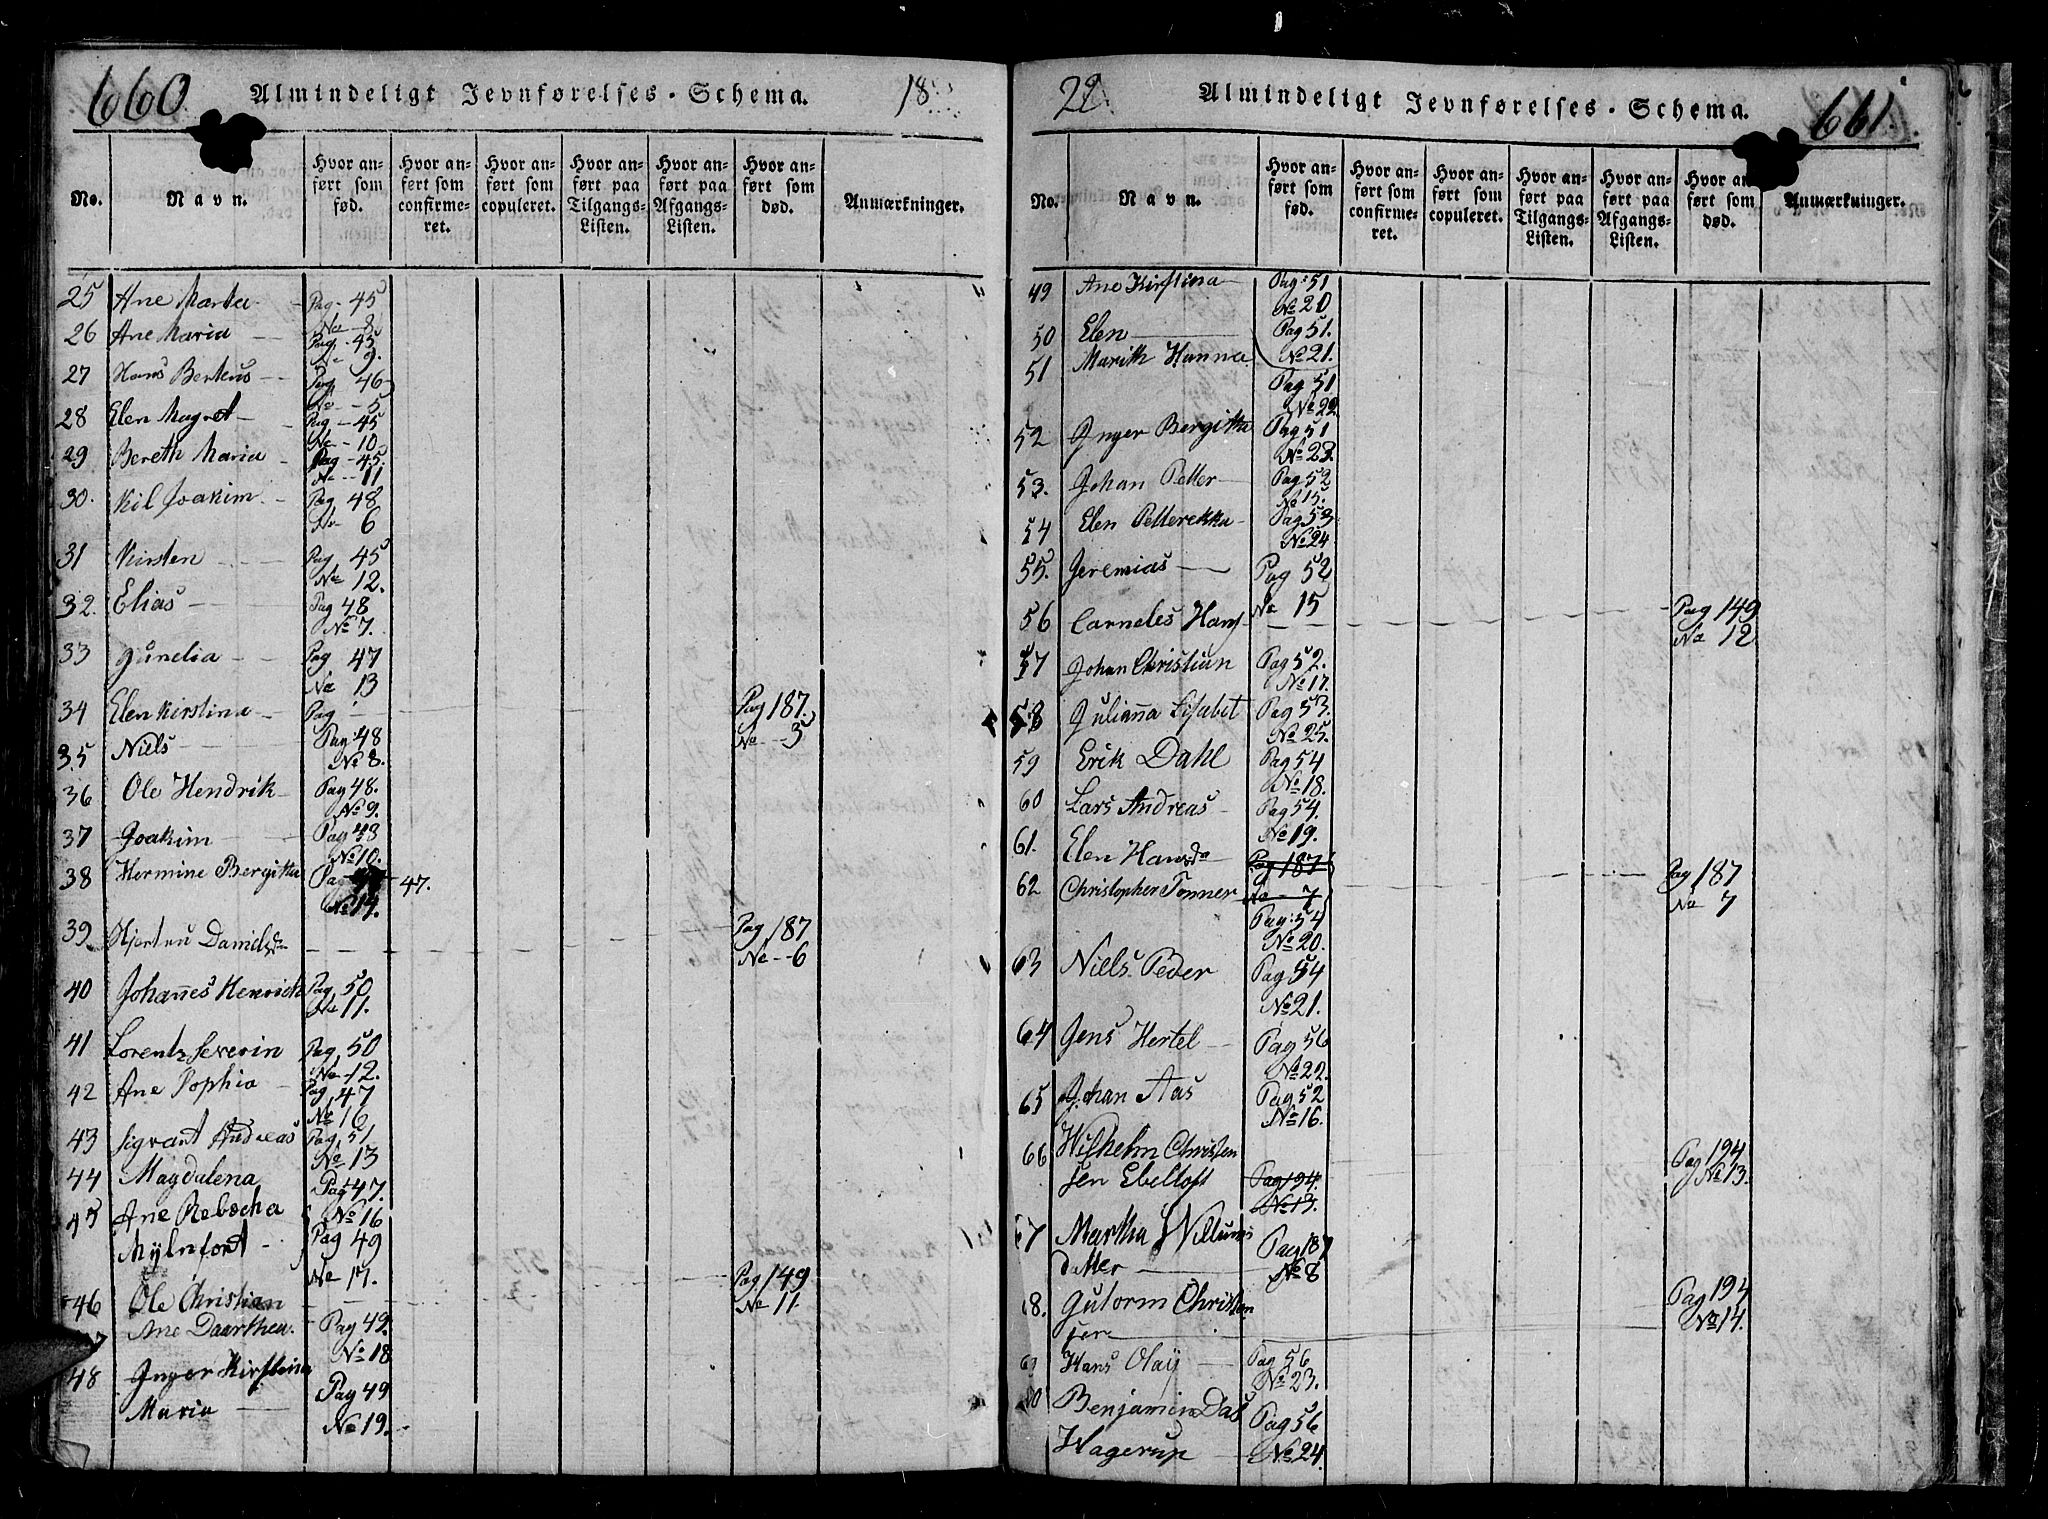 660. Almindeligt Jevnførelses-Schema. 18
No. Navn. Hvor anført som fød. Hvor anført som confirmeret. Hvor anført som copuleret. Hvor anført paa Tilgangs-Listen. Hvor anført paa Afgangs-Listen. Hvor anført som død. Anmærkninger.
25 Ane Marta Pag - 45
No - 8
26 Ane Maria Pag - 45
No 9.
27 Hans Berteus Pag 46
No - 5
28 Elen Magret Pag - 45
No - 10
29 Bereth Maria Pag - 45
No - 11
30. Kil Joakim Pag 48
No 6
31 Kirsten Pag 45
No 12.
32. Elias Pag 48
No 7.
33 Gunelia Pag 47
No 13
34 Elen Kirstina Pag Pag 187.
No - 5
35 Niels Pag 48
No 8.
36 Ole Hendrik Pag 48.
No 9.
37 Joakim Pag 48
No 10.
38 Hermine Bergitha Pag 47.
No 14.
39 Daniels Pag 187
No - 6
40 Johannes Henrich Pag 50
No 11.
41 Lorentz Severin Pag 50
No - 12.
42 Ane Sophia Pag 47
No 16
43 Sigvant Andreas Pag 51
No 13
44 Magdalena Pag 47.
No 16
45 Ane Rebecha Pag 49
Mylnfort No 17.
46 Ole Christian Pag 149
No 11.
Ane Daarthea Pag 49.
No 18
48 Inger Kirstina Pag 49
Maria No 19.
22. Almindeligt Jevnførelses-Schema. 661.
No. Navn. Hvor anført som fød. Hvor anført som confirmeret. Hvor anført som copuleret. Hvor anført paa Tilgangs-Listen. Hvor anført paa Afgangs-Listen. Hvor an-ført som død. Anmærkninger.
49 Ane Kirstina Pag: 51
No 20
50 Elen Pag 51.
No 21.
51 Marith Hanna Pag 51
No 22
52 Inger Bergitha Pag 51
No 23.
53. Johan Petter Pag 52
No 15.
54 Elen Petterekka Pag 53
No 24
55. Jeremias Pag 52
No 15
56 Carneles Hans Pag 149
No 12
57 Johan Christian Pag 52.
No 17.
58 Julianna Lisabet Pag 53.
No 25.
59 Erik Dahl Pag 54
No 18.
60 Lars Andreas Pag 54.
No 19.
61. Elen Hansda Pag 187
No 7
62 Christopher Tønner Pag 187
No 7
Pag: 54
No 20.
63 Niels Peder Pag 54
No 21.
64 Jens Hertel Pag 56
No 22.
65 Johan Aas Pag 52
No 16.
66 Wilhelm Christen Pag 194
sen Ebeltoft Pag 194. No 13.
No 13.
67 Martha Willums Pag 187
datter No 8
8. Gutorm Christen Pag 194
sen No 14.
Hans Olay Pag 56
No 23.
Benjamin Das Pag 56
Hagerup No 24.